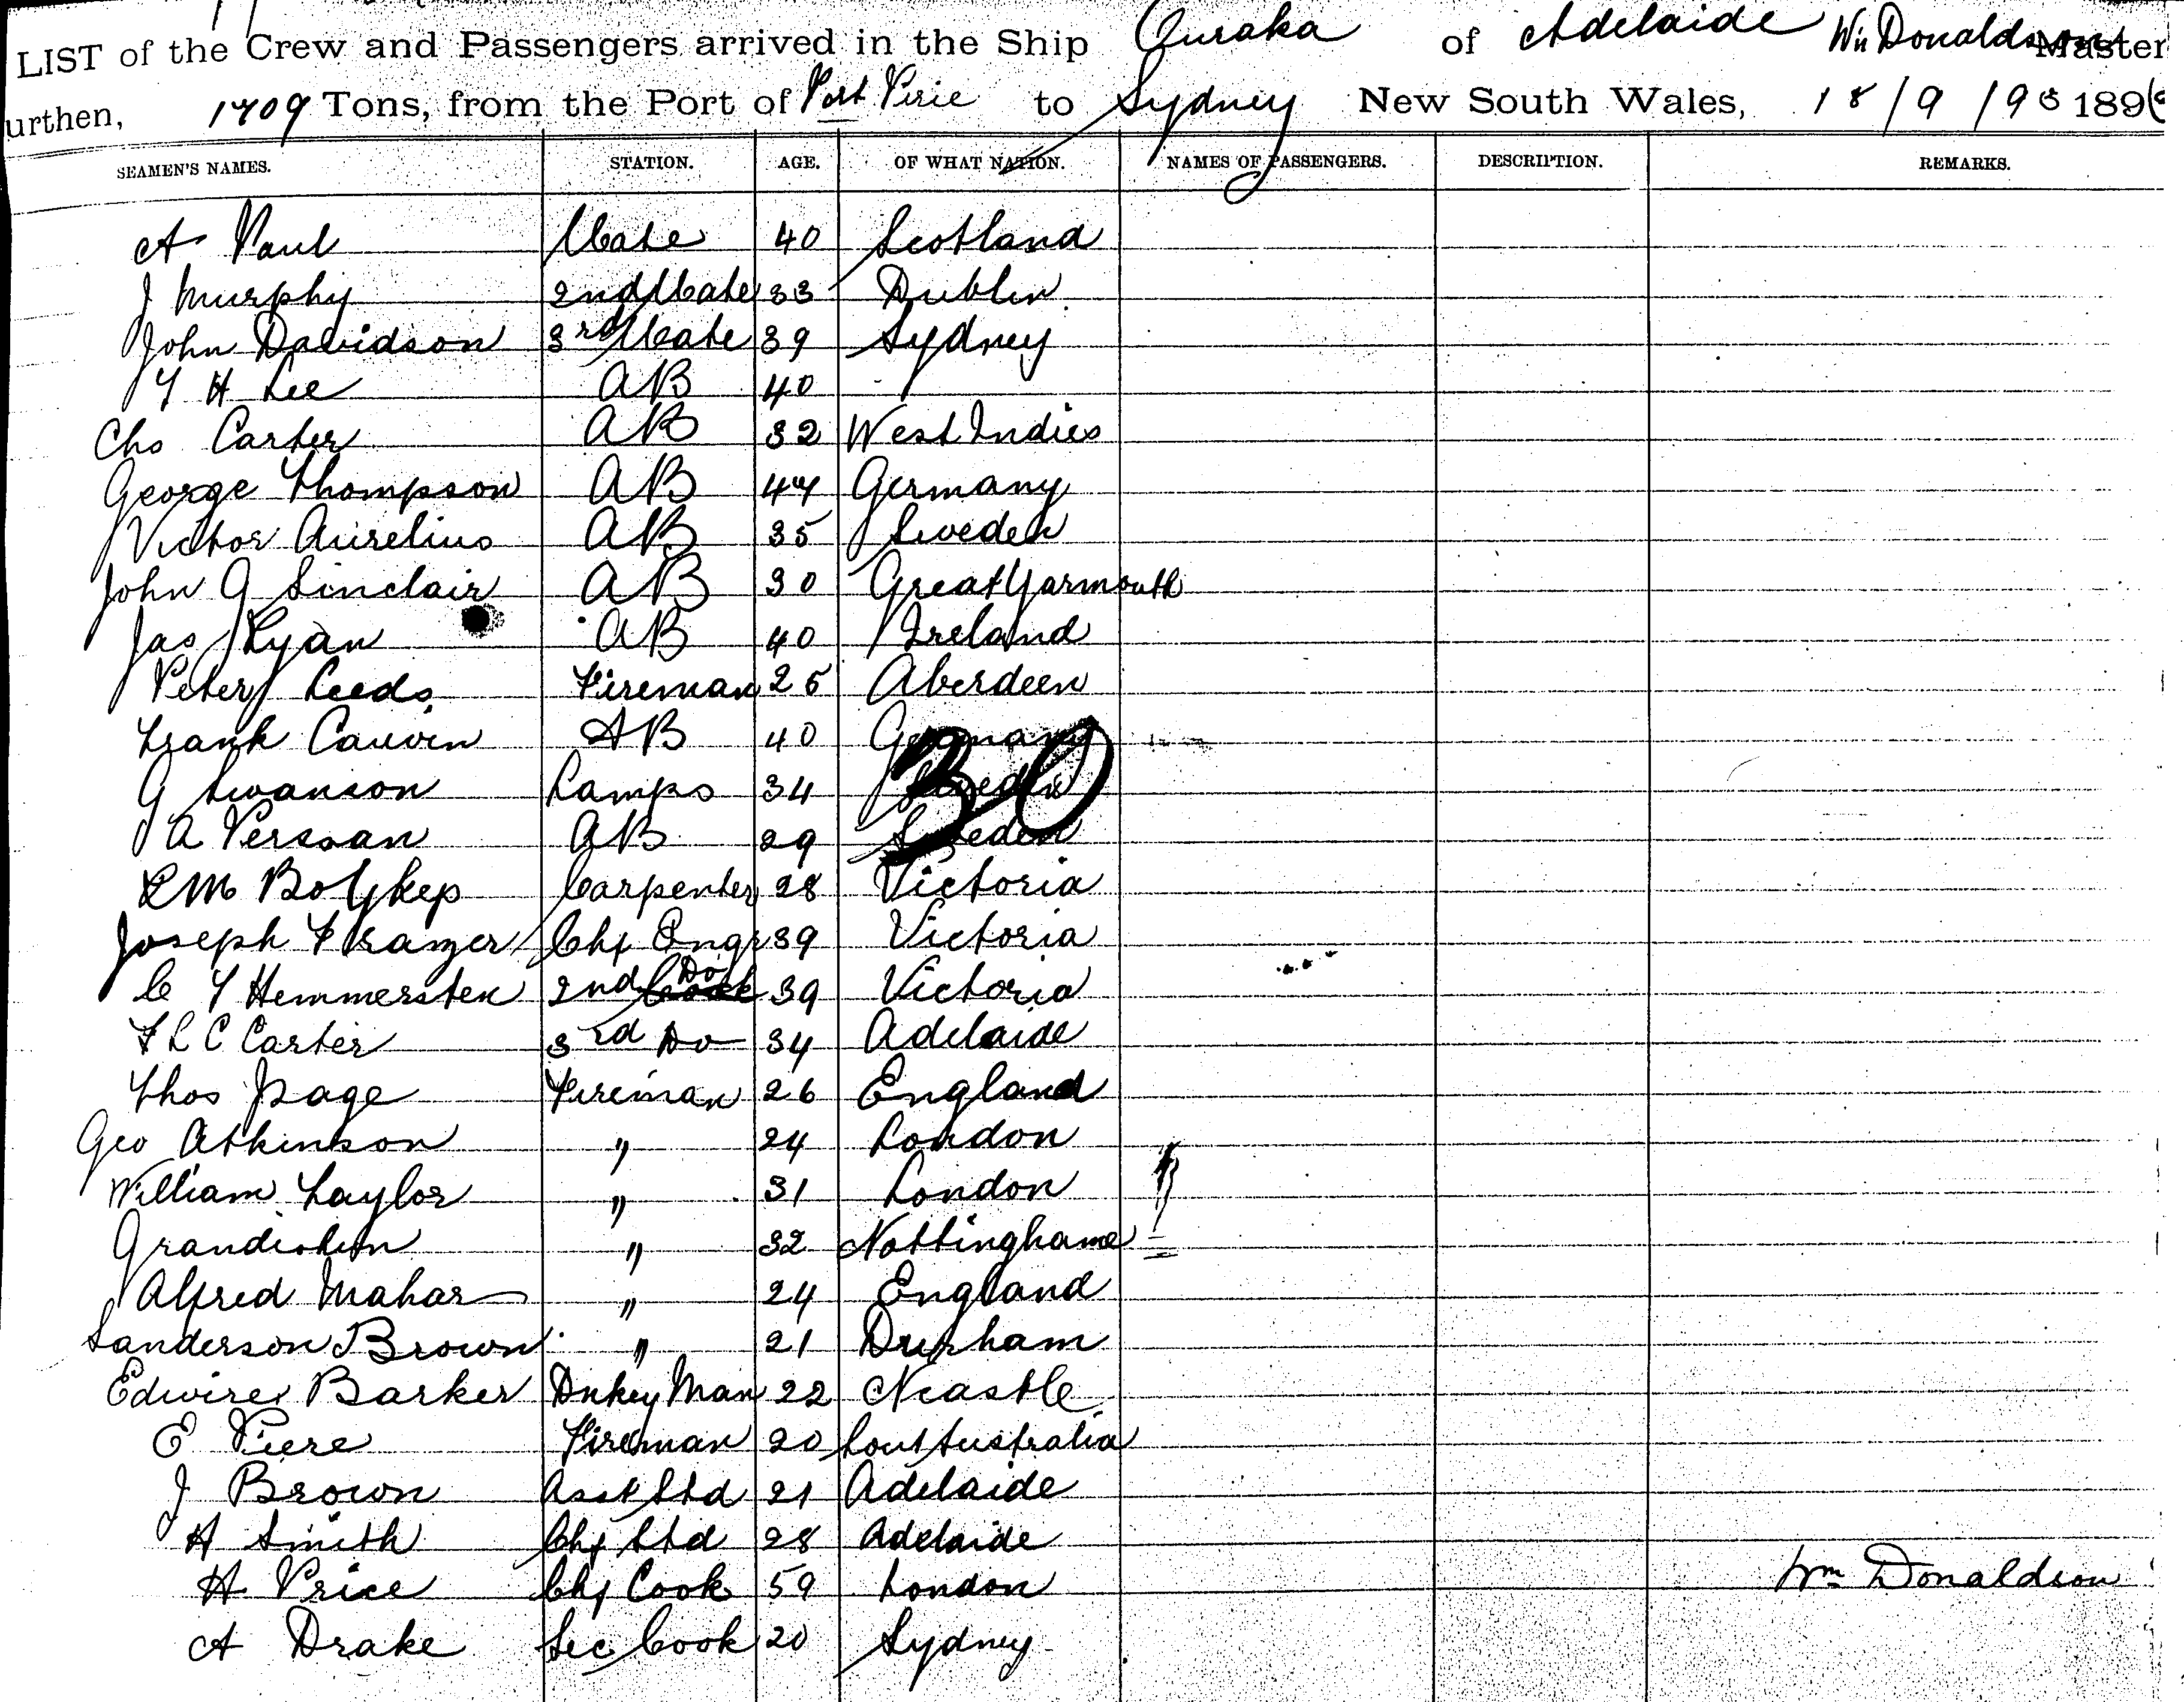 LIST of the Crew and Passengers arrived in the Ship Ouraka of Adelaide Wm Donaldson Master
urthen, 1709 Tons, from the Port of Port Pirie to Sydney New South Wales, 18/9/96 1896
SEAMEN'S NAMES. STATION. AGE. OF WHAT NATION. NAMES OF PASSENGERS. DESCRIPTION. REMARKS.
A Paul Mate 40 Scotland
J Murphy 2nd Mate 33 Dublin
John Davidson 3rd Mate 39 Sydney
T H Lee AB 40 "
Chs Carter AB 32 West Indies
George Thompson AB 44 Germany
Victor Aurelius AB 35 Sweden
John G Sinclair AB 30 Great Yarmouth
Jas Ryan AB 40 Ireland
Peter Leeds Fireman 25 Aberdeen
Frank Cauvin AB 40 Germany
G Swanson Lamps 34 Sweden
30
A Perssan AB 29 Sweden
Carpenter 28 Victoria
Joseph Frazer Chf Engr 39 Victoria
C T Hemmersten 2nd Cook Do 39 Victoria
F L C Carter 3rd Do 34 Adelaide
Thos Page Fireman 26 England
Geo Atkinson " 24 London
William Taylor " 31 London
" 32 Nottinghame
Alfred Mahar " 24 England
Sanderson Brown " 21 Durham
Barker Dnkey Man 22 Ncastle
E Piere Fireman 20 Sout Australia
J Brown Asst Std 21 Adelaide
H Smith Chf Std 28 Adelaide
H Price Chf Cook 59 London Wm Donaldson
A Drake Sec Cook 20 Sydney